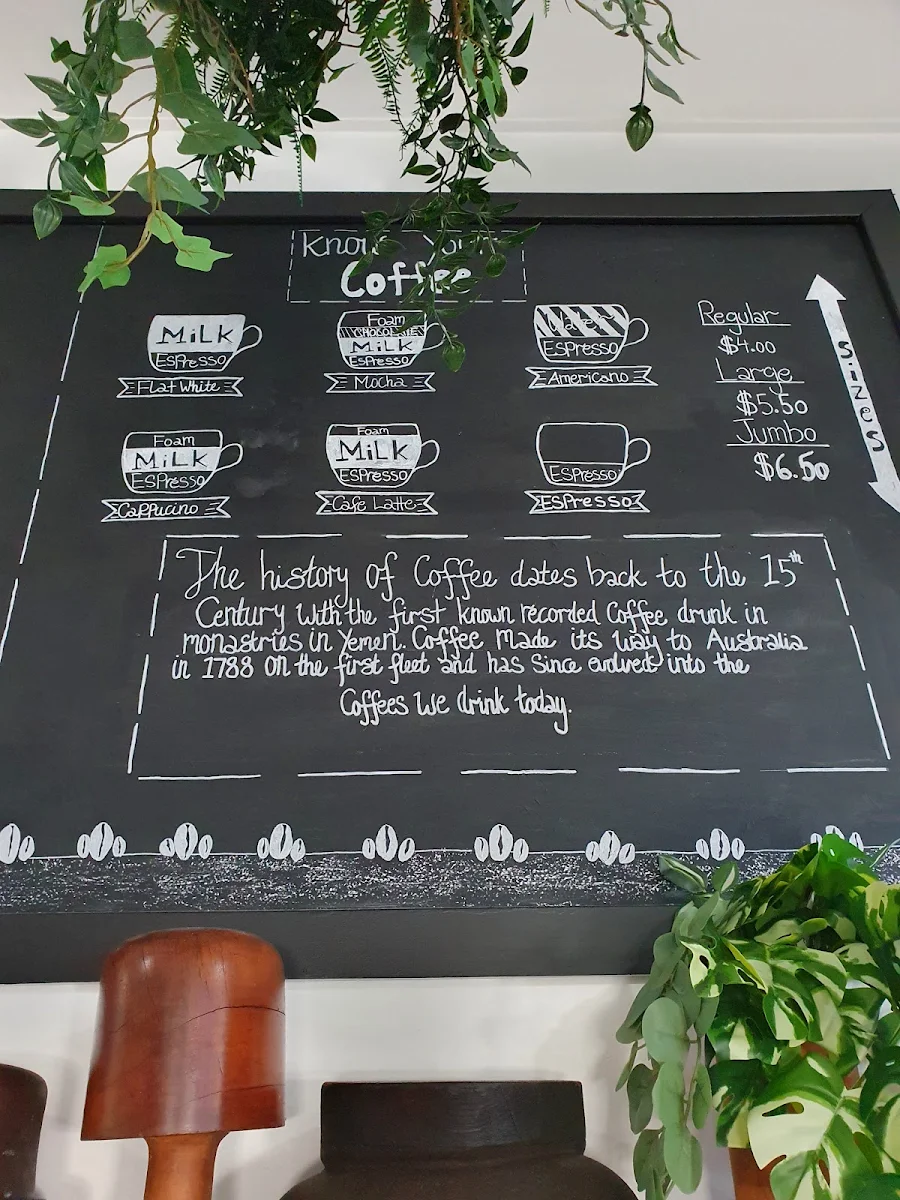 Know Your
Coffee
MILK
ESPresso
Flat White
Foam
CHOCOLATE
MILK
ESPresso
Mocha
Water
ESPresso
Americano
Foam
MiLK
ESPresso
Cappucino
Foam
MiLK
ESPresso
Cafe Latte
ESPresso
ESPresso
Regular
$4.00
Large
$5.50
Jumbo
$6.50
Sizes
The history of Coffee dates back to the 15th
Century with the first known recorded Coffee drunk in
monastries in Yemen. Coffee made its way to Australia
in 1788 on the first fleet and has Since evolved into the
Coffees we drink today.